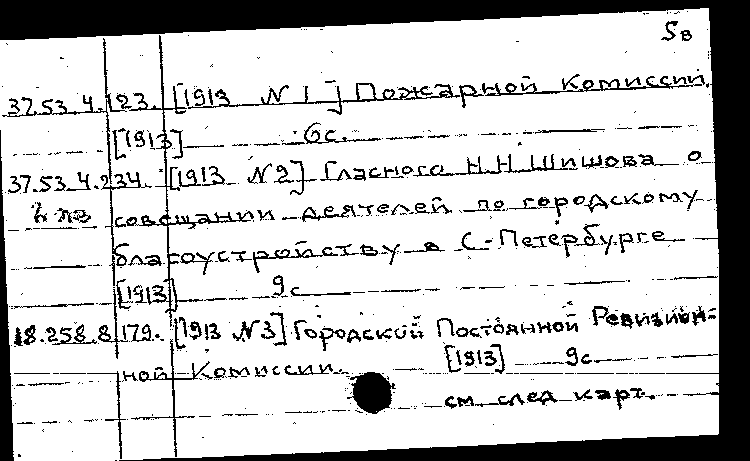 5в
37.53.4.123. [1913 № 1] Пожарной Комиссии.
[1913] 6с.
37.53.4.234. [1913 № 2] Гласного Н.Н.Шишова о
совещании деятелей по городскому
благоустройству в С-Петербурге
[1913] 9с
18.258.8.179. [1913 № 3] Городской Постоянной Ревизион-
ной Комиссии. [1913] 9с.
см. след карт.